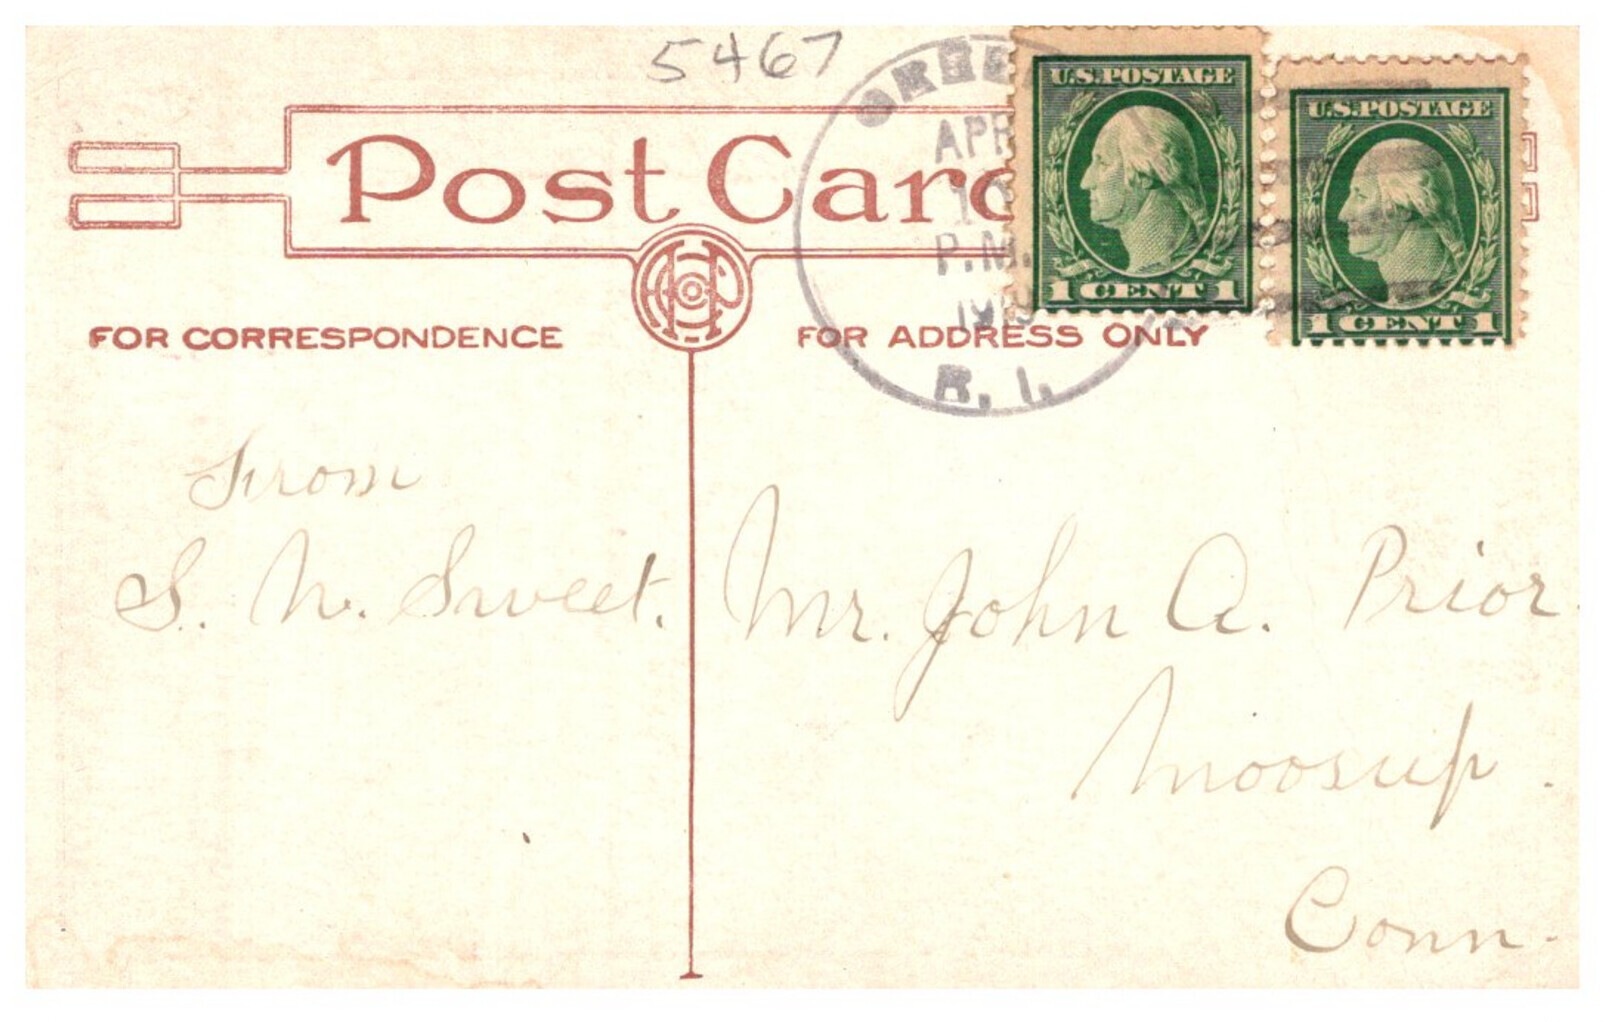 5467
U.S. POSTAGE
1 CENT 1
U.S. POSTAGE
1 CENT 1
APR
P.M.
R. I.
Post Card
FOR CORRESPONDENCE
FOR ADDRESS ONLY
From
S. N. Sweet.
Mr. John A. Prior.
Moosup.
Conn.